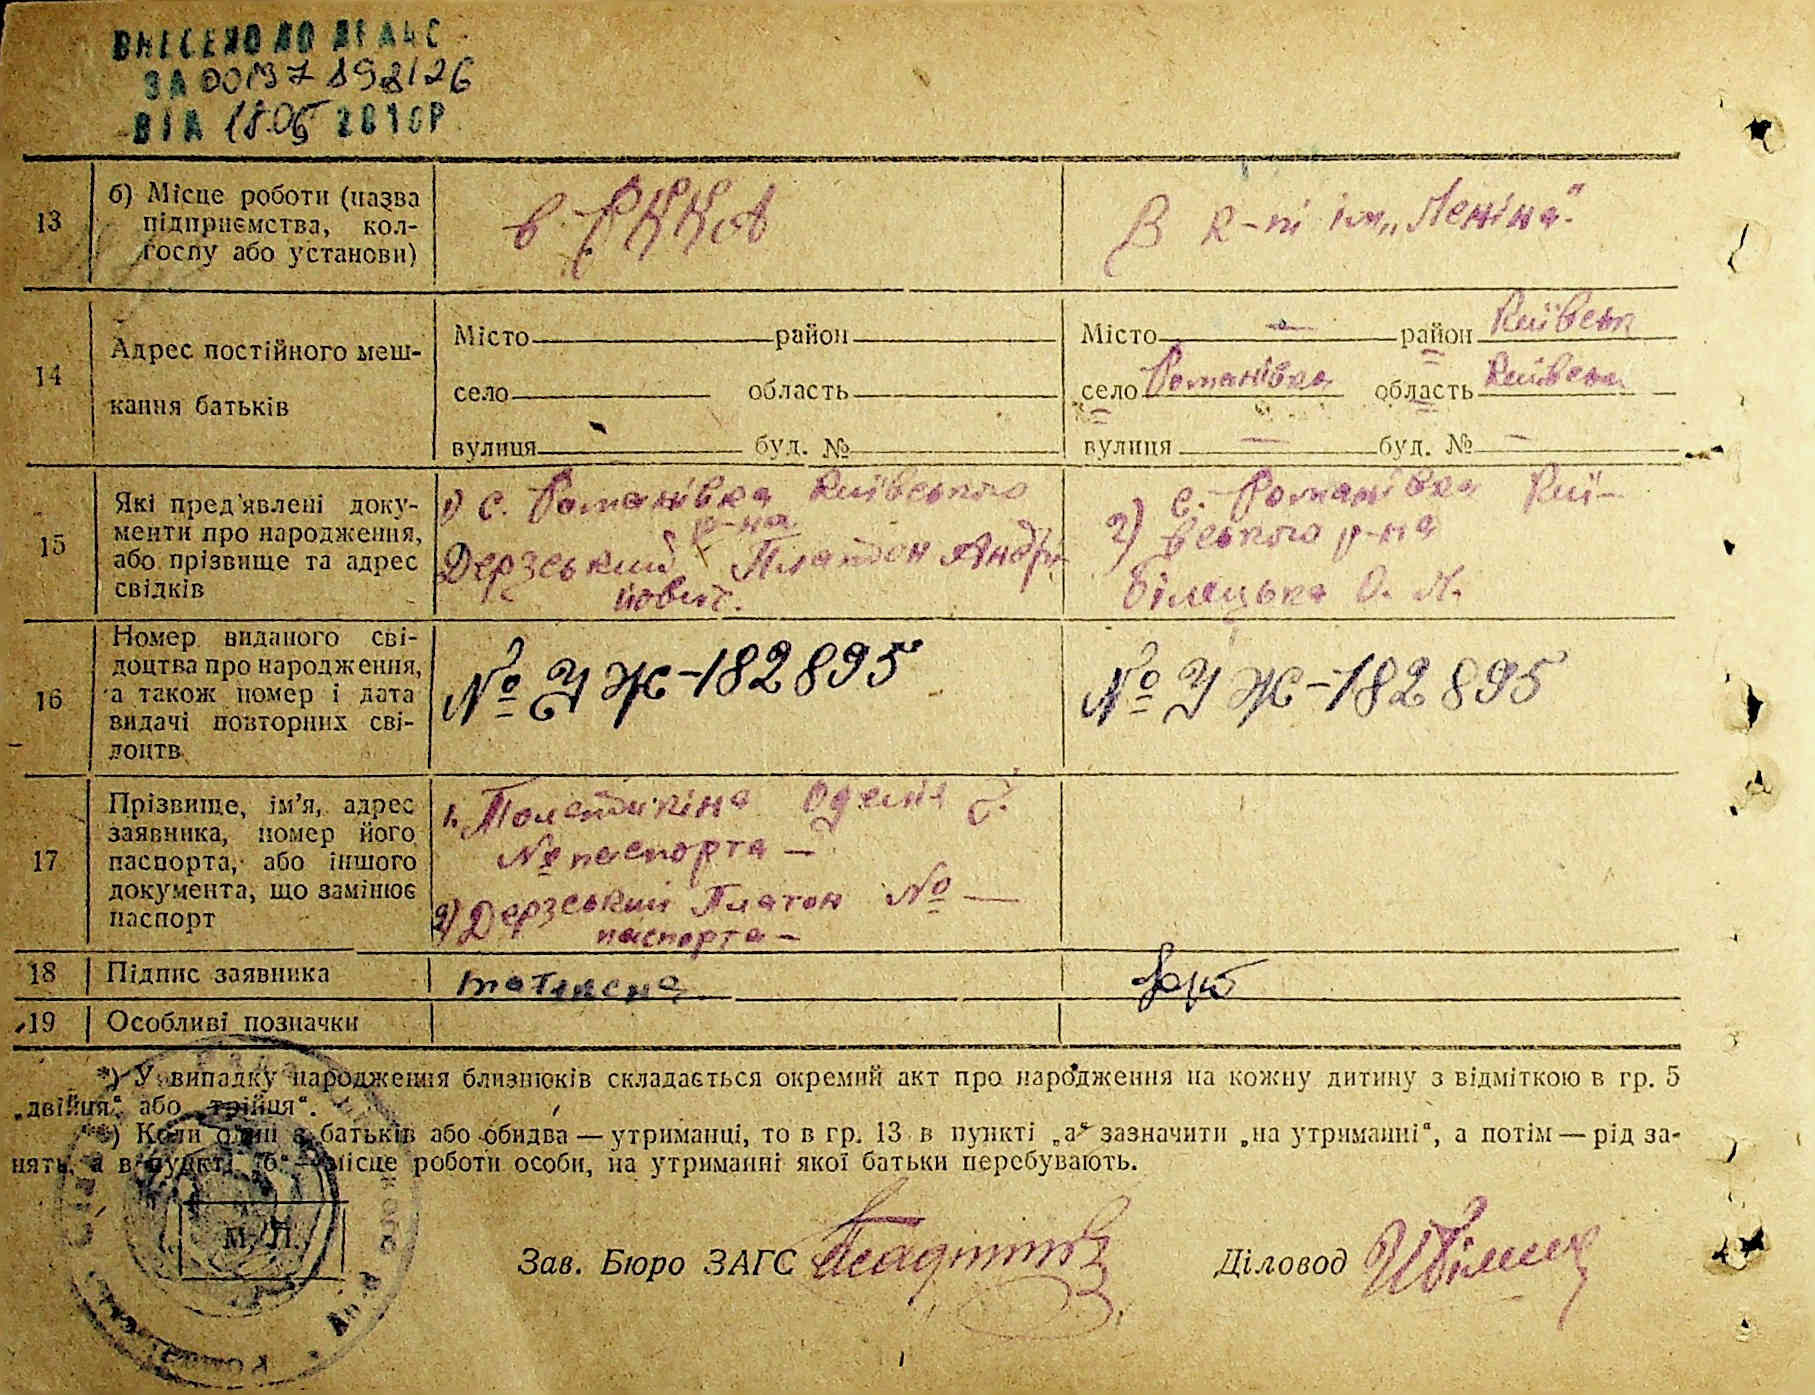 ВНЕСЕНО ДО ДРАЦС
ЗА 00137 898126
ВІД 18.05 2010Р
13 б) Місце роботи (назва підприємства, колгоспу або установи)
в РККА
В к-пі ім. „Леніна".
14 Адрес постійного мешкання батьків
Місто район
село область
вулиця буд. №
Місто — район Київськ
село Романівка область Київськ
вулиця — буд. № —
15 Які пред'явлені документи про народження, або прізвище та адрес свідків
1) с. Романівка Київського
р-на
Дерзський Платон Андрі-
йович.
2) с. Романівка Киї-
вського р-на
Білецька О. М.
16 Номер виданого свідоцтва про народження, а також номер і дата видачі повторних свідоцтв
№ УЖ-182895
№ УЖ-182895
17 Прізвище, ім'я, адрес заявника, номер його паспорта, або іншого документа, що замінює паспорт
1.
№ паспорта —
2) Дерзський Платон № —
паспорта —
18 Підпис заявника
19 Особливі позначки
*) У випадку народження близнюків складається окремий акт про народження на кожну дитину з відміткою в гр. 5
„двійця" або „трійця".
**) Коли один з батьків або обидва — утриманці, то в гр. 13 в пункті „а" зазначити „на утриманні", а потім — рід за-
нять, а в пункті „б" — місце роботи особи, на утриманні якої батьки перебувають.
М. П.
Зав. Бюро ЗАГС
Діловод